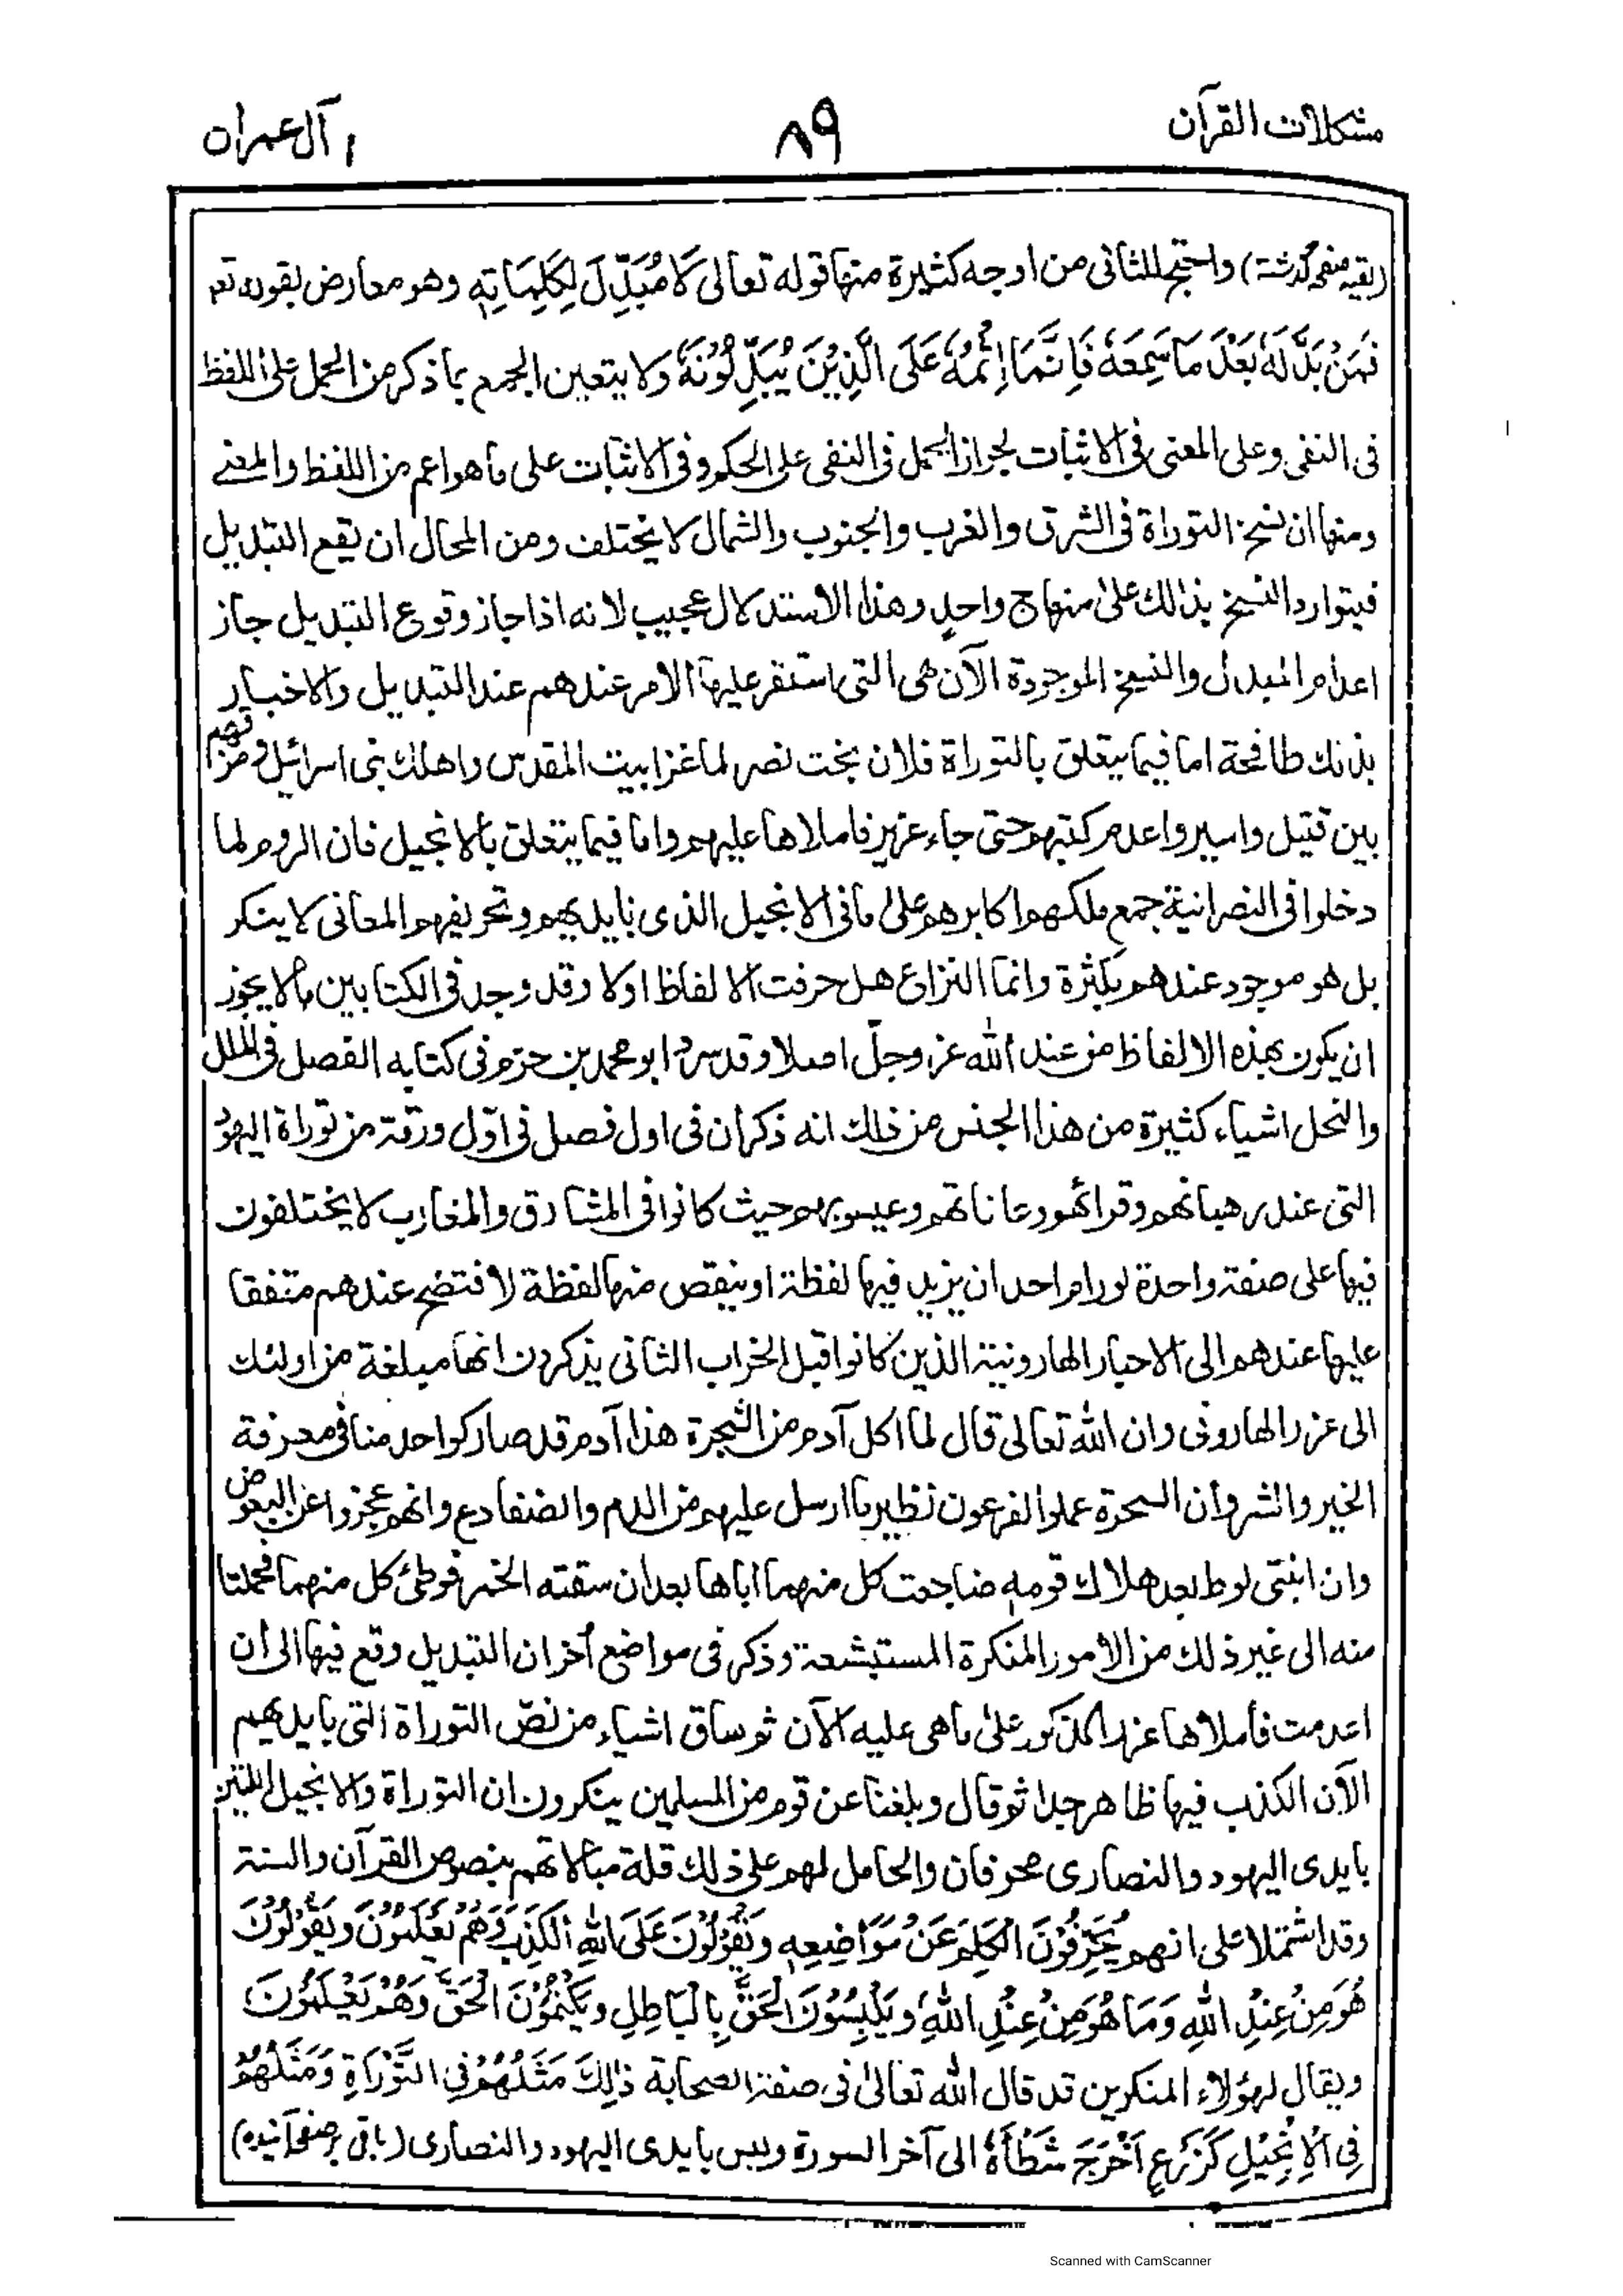 مشكلات القرآن
۸۹
آل عمران
(بقیہ صفحہ گذشتہ) واحتج للثانى من اوجه كثيرة منها قوله تعالى لَا مُبَدِّلَ لِكَلِمَاتِهٖ وهو معارض بقوله تعه
فَمَنْ بَدَّلَهٗ بَعْدَ مَا سَمِعَهٗ فَاِنَّمَا اِثْمُهٗ عَلَى الَّذِيْنَ يُبَدِّلُوْنَهٗ ولا يتعين الجمع بما ذكر من الحمل على اللفظ
فى النفى وعلى المعنى فى الاثبات لجواز الحمل فى النفى على الحكم وفى الاثبات على ما هو اعم من اللفظ والمعنے
ومنها ان نسخ التوراة فى الشرق والغرب والجنوب والشمال لا يختلف ومن المحال ان يقع التبديل
فيتوارد النسخ بذالك على منهاج واحدٍ وهذا الاستدلال عجيب لانه اذا جاز وقوع التبديل جاز
اعدام المبدل والنسخ الموجودة الآن هى التى استقر عليها الامر عندهم عند التبديل والاخبار
بذلك طافحة اما فيما يتعلق بالتوراة فلان بخت نصر لما غزا بيت المقدس واهلك بنى اسرائيل ومزقهم
بين قتيل واسير واعدم كتبهم حتى جاء عزير فاملاها عليهم واما فيما يتعلق بالانجيل فان الروم لما
دخلوا فى النصرانية جمع ملكهم اكابرهم على ما فى الانجيل الذى بايديهم وتحريفهم المعانى لا ينكر
بل هو موجود عندهم بكثرة وانما النزاع هل حرفت الالفاظ اولا وقد وجد فى الكتابين ما لا يجوز
ان يكون بهذه الالفاظ من عند الله عز وجلّ اصلا وقد سرد ابو محمد بن حزم فى كتابه الفصل فى الملل
والنحل اشياء كثيرة من هذا الجنس من ذلك انه ذكر ان فى اول فصل فى اوّل ورقة من توراة اليهود
التى عند رهبانهم وقرائهم وعاناتهم وعيسويهم حيث كانوا فى المشارق والمغارب لا يختلفون
فيها على صفة واحدة لو رام احد ان يزيد فيها لفظة او ينقص منها لفظة لافتضح عندهم متفقا
عليها عندهم الى الاحبار الهارونية الذين كانوا قبل الخراب الثانى يذكرون انها مبلغة من اولئك
الى عزرا الهارونى وان الله تعالى قال لما اكل آدم من الشجرة هذا آدم قد صار كواحد منا فى معرفة
الخير والشر وأن السحرة عملوا لفرعون نظير ما ارسل عليهم من الدم والضفادع وانهم عجزوا عن البعوض
وان ابنتى لوط بعد هلاك قومه ضاجعت كل منهما اباها بعد ان سقته الخمر فوطئ كل منهما فحملتا
منه الى غير ذلك من الامور المنكرة المستبشعة وذكر فى مواضع أخر ان التبديل وقع فيها الى ان
اعدمت فأملاها عزرا المذكور على ما هى عليه الآن ثم ساق اشياء من نصّ التوراة التى بايديهم
الآن الكذب فيها ظاهر جدا ثم قال وبلغنا عن قوم من المسلمين ينكرون ان التوراة والانجيل اللتين
بايدى اليهود والنصارى محرفان والحامل لهم على ذلك قلة مبالاتهم بنصوص القرآن والسنة
وقد اشتملا على انهم يُحَرِّفُوْنَ الْكَلِمَ عَنْ مَّوَاضِعِهٖ وَيَقُوْلُوْنَ عَلَى اللهِ الْكَذِبَ وَهُمْ يَعْلَمُوْنَ وَيَقُوْلُوْنَ
هُوَ مِنْ عِنْدِ اللهِ وَمَا هُوَ مِنْ عِنْدِ اللهِ وَيَلْبِسُوْنَ الْحَقَّ بِالْبَاطِلِ وَيَكْتُمُوْنَ الْحَقَّ وَهُمْ يَعْلَمُوْنَ
ويقال لهؤلاء المنكرين قد قال الله تعالىٰ فى صفة الصحابة ذٰلِكَ مَثَلُهُمْ فِى التَّوْرَاةِ وَمَثَلُهُمْ
فِى الْاِنْجِيْلِ كَزَرْعٍ اَخْرَجَ شَطْأَهٗ الى آخر السورة وليس بايدى اليهود والنصارى (باقى بر صفحه آئنده)
Scanned with CamScanner